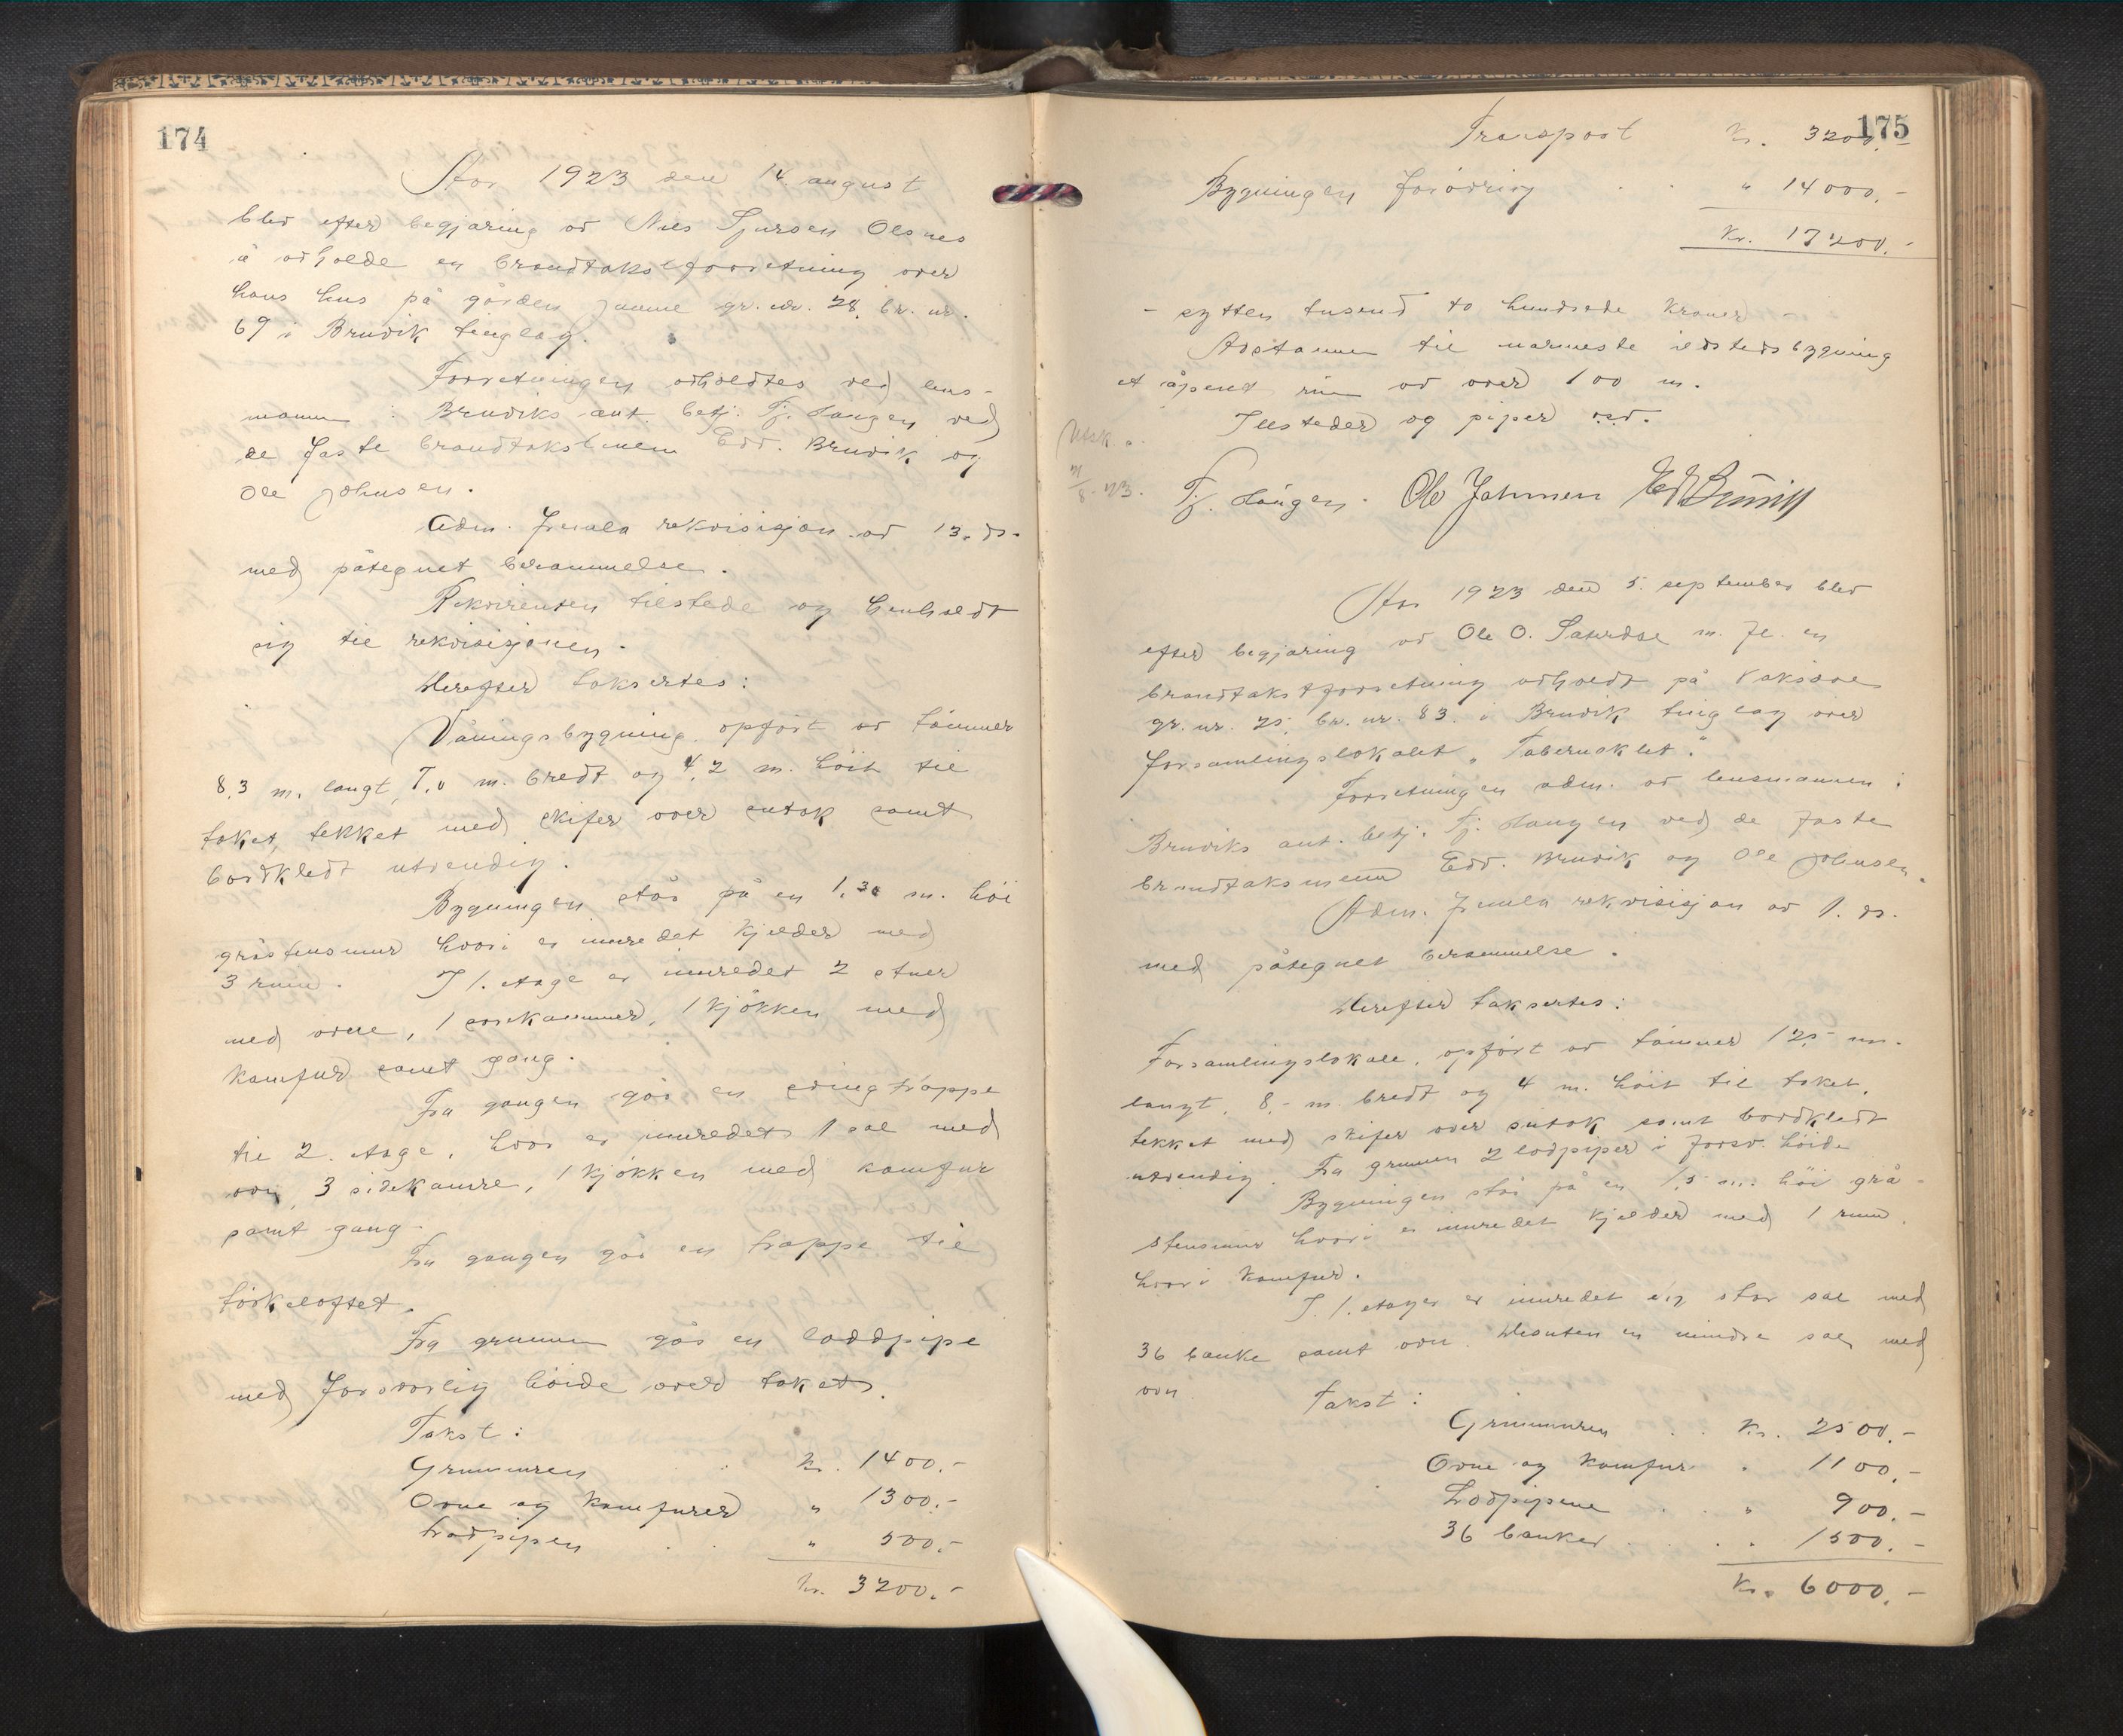 174
År 1923 den 14. august
blev efter begjæring av Nils Sjursen Olsnes
avholdt en brandtakstforretning over
hans hus på gården gr. nr. 28, br. nr.
69 i Bruvik tinglag.
Forretningen avholdtes ved lens-
mannen i Bruviks aut. betj. Fj. Haugen ved
de faste brandtakstmenn Edv. Bruvik og
Ole Johnsen.
Adm. fremla rekvisisjon av 13. ds.
med påtegnet berammelse.
Rekvirenten tilstede og henholdt
sig til rekvisisjonen.
Herefter taksertes:
Våningsbygning, opført av tømmer
8,3 m. langt, 7,0 m. bredt og 4,2 m. höit til
taket, tekket med skifer over sutak samt
bordkledt utvendig.
Bygningen står på en 1,30 m. höi
gråstensmur hvori er innredet kjelder med
3 rum. I 1. etage er innredet 2 stuer
med ovne, 1 sovekammer, 1 kjökken med
komfur samt gang.
Fra gangen går en svingtrappe
til 2. etage, hvor er innredet 1 sal med
ovn, 3 sidekamre, 1 kjökken med komfur
samt gang.
Fra gangen går en trappe til
törkeloftet.
Fra grunnen går en loddpipe
med forsvarlig höide over taket.
Takst:
Grunnmuren . . kr. 1400.-
Ovne og komfurer " 1300.-
Lodpipen . . " 500.-
kr. 3200.-
175
Transport kr. 3200.-
Bygningen forövrig . . " 14000.-
Kr. 17200.-
- sytten tusend to hundrede kroner -
Avstannen til nærmeste ildstedsbygning
et åpent rum av over 100 m.
Ildsteder og piper
Utsk.
/8-23.
Fj. Haugen. Ole Johnsen Ed Bruvik
År 1923 den 5. september blev
efter begjæring av Ole O. m. fl. en
brandtakstforretning avholdt på Vaksdal
gr. nr. 25, br. nr. 83. i Bruvik tinglag over
forsamlingslokalet "Tabernaklet".
Forretningen adm. av lensmannen i
Bruviks aut. betj. Fj. Haugen ved de faste
brandtaksmenn Edv. Bruvik og Ole Johnsen.
Adm. fremla rekvisisjon av 1. ds.
med påtegnet berammelse.
Herefter taksertes:
Forsamlingslokale, opfört av tömmer 12,5 m.
langt, 8.- m. bredt og 4 m. höit til taket,
tekket med skifer over sutak samt bordkledt
utvendig. Fra grunnen 2 lodpiper i forsv. höide
Bygningen står på en 1,5 m. höi grå-
stensmur hvori er innredet kjelder med 1 rum,
hvori komfur.
I 1. etage er innredet en stor sal med
36 banke samt ovn. Desuten en mindre sal med
ovn.
Takst:
Grunnmuren . . Kr. 2500.-
Ovne og komfur " 1100.-
Lodpipene . . " 900.-
36 banker . . . " 1500.-
Kr. 6000.-